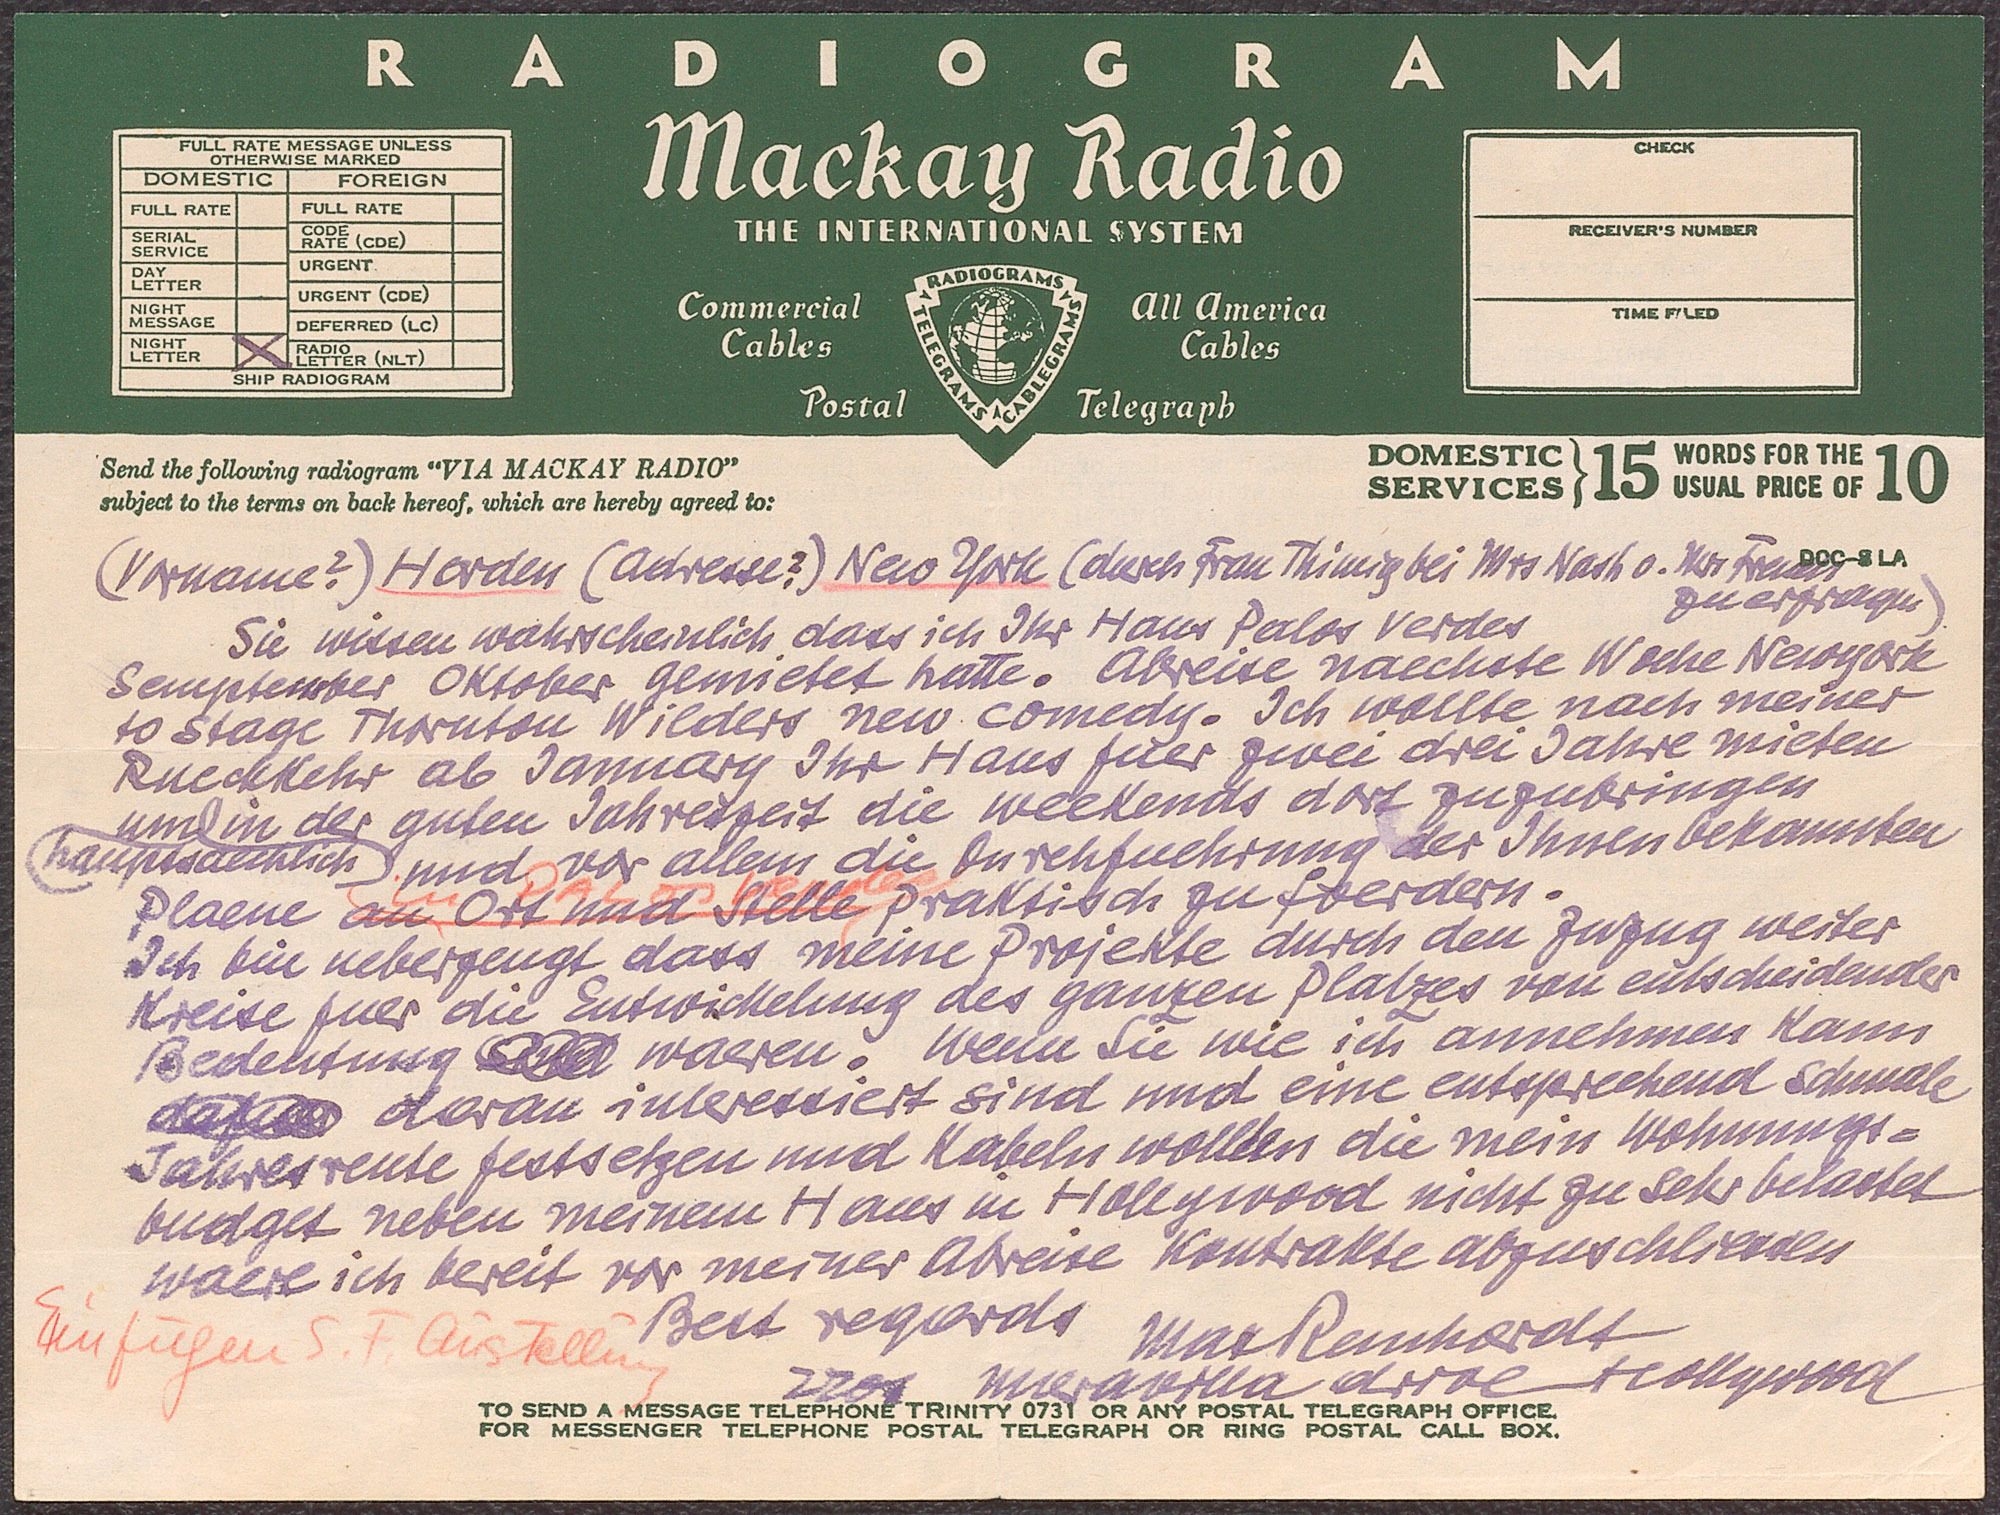 RADIOGRAM
Mackay Radio
THE INTERNATIONAL SYSTEM
Commercial Cables
All America Cables
Postal Telegraph
RADIOGRAMS
TELEGRAMS
CABLEGRAMS
FULL RATE MESSAGE UNLESS
OTHERWISE MARKED
DOMESTIC FOREIGN
FULL RATE
SERIAL SERVICE
DAY LETTER
NIGHT MESSAGE
NIGHT LETTER X
FULL RATE
CODE RATE (CDE)
URGENT
URGENT (CDE)
DEFERRED (LC)
RADIO LETTER (NLT)
SHIP RADIOGRAM
CHECK
RECEIVER'S NUMBER
TIME FILED
Send the following radiogram "VIA MACKAY RADIO"
subject to the terms on back hereof, which are hereby agreed to:
DOMESTIC SERVICES } 15 WORDS FOR THE USUAL PRICE OF 10
DCC-8 LA
(Vorname?) Harden (Adresse?) New York (durch Frau Thimig bei Mrs Nash o. Mrs
zu erfragen)
Sie wissen wahrscheinlich dass ich Ihr Haus Palos Verdes
Semptember Oktober gemietet hatte. Abreise naechste Woche Newyork
to stage Thornton Wilders new comedy. Ich wollte nach meiner
Rueckkehr ab January Ihr Haus fuer zwei drei Jahre mieten
um in der guten Jahreszeit die weekends dort zuzubringen
(hauptsaechlich) und vor allem die Durchfuehrung der Ihnen bekannten
Plaene an Ort und Stelle praktisch zu foerdern.
Ich bin ueberzeugt dass meine Projekte durch den Zuzug weiter
Kreise fuer die Entwickelung des ganzen Platzes von entscheidender
Bedeutung waeren. Wenn Sie wie ich annehmen kann
daran interessiert sind und eine entsprechend schmale
Jahresrente festsetzen und kabeln wollen die mein Wohnungs=
budget neben meinem Haus in Hollywood nicht zu sehr belastet
waere ich bereit vor meiner Abreise Kontrakte abzuschliessen
Best regards Max Reinhardt
Einfügen S. F. Ausstellung
2201 Maravilla drive Hollywood
TO SEND A MESSAGE TELEPHONE TRINITY 0731 OR ANY POSTAL TELEGRAPH OFFICE.
FOR MESSENGER TELEPHONE POSTAL TELEGRAPH OR RING POSTAL CALL BOX.